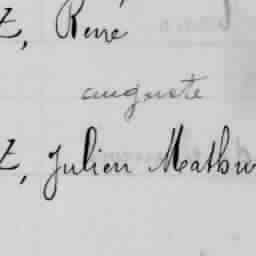 z, René
auguste
z, Julien Mathu